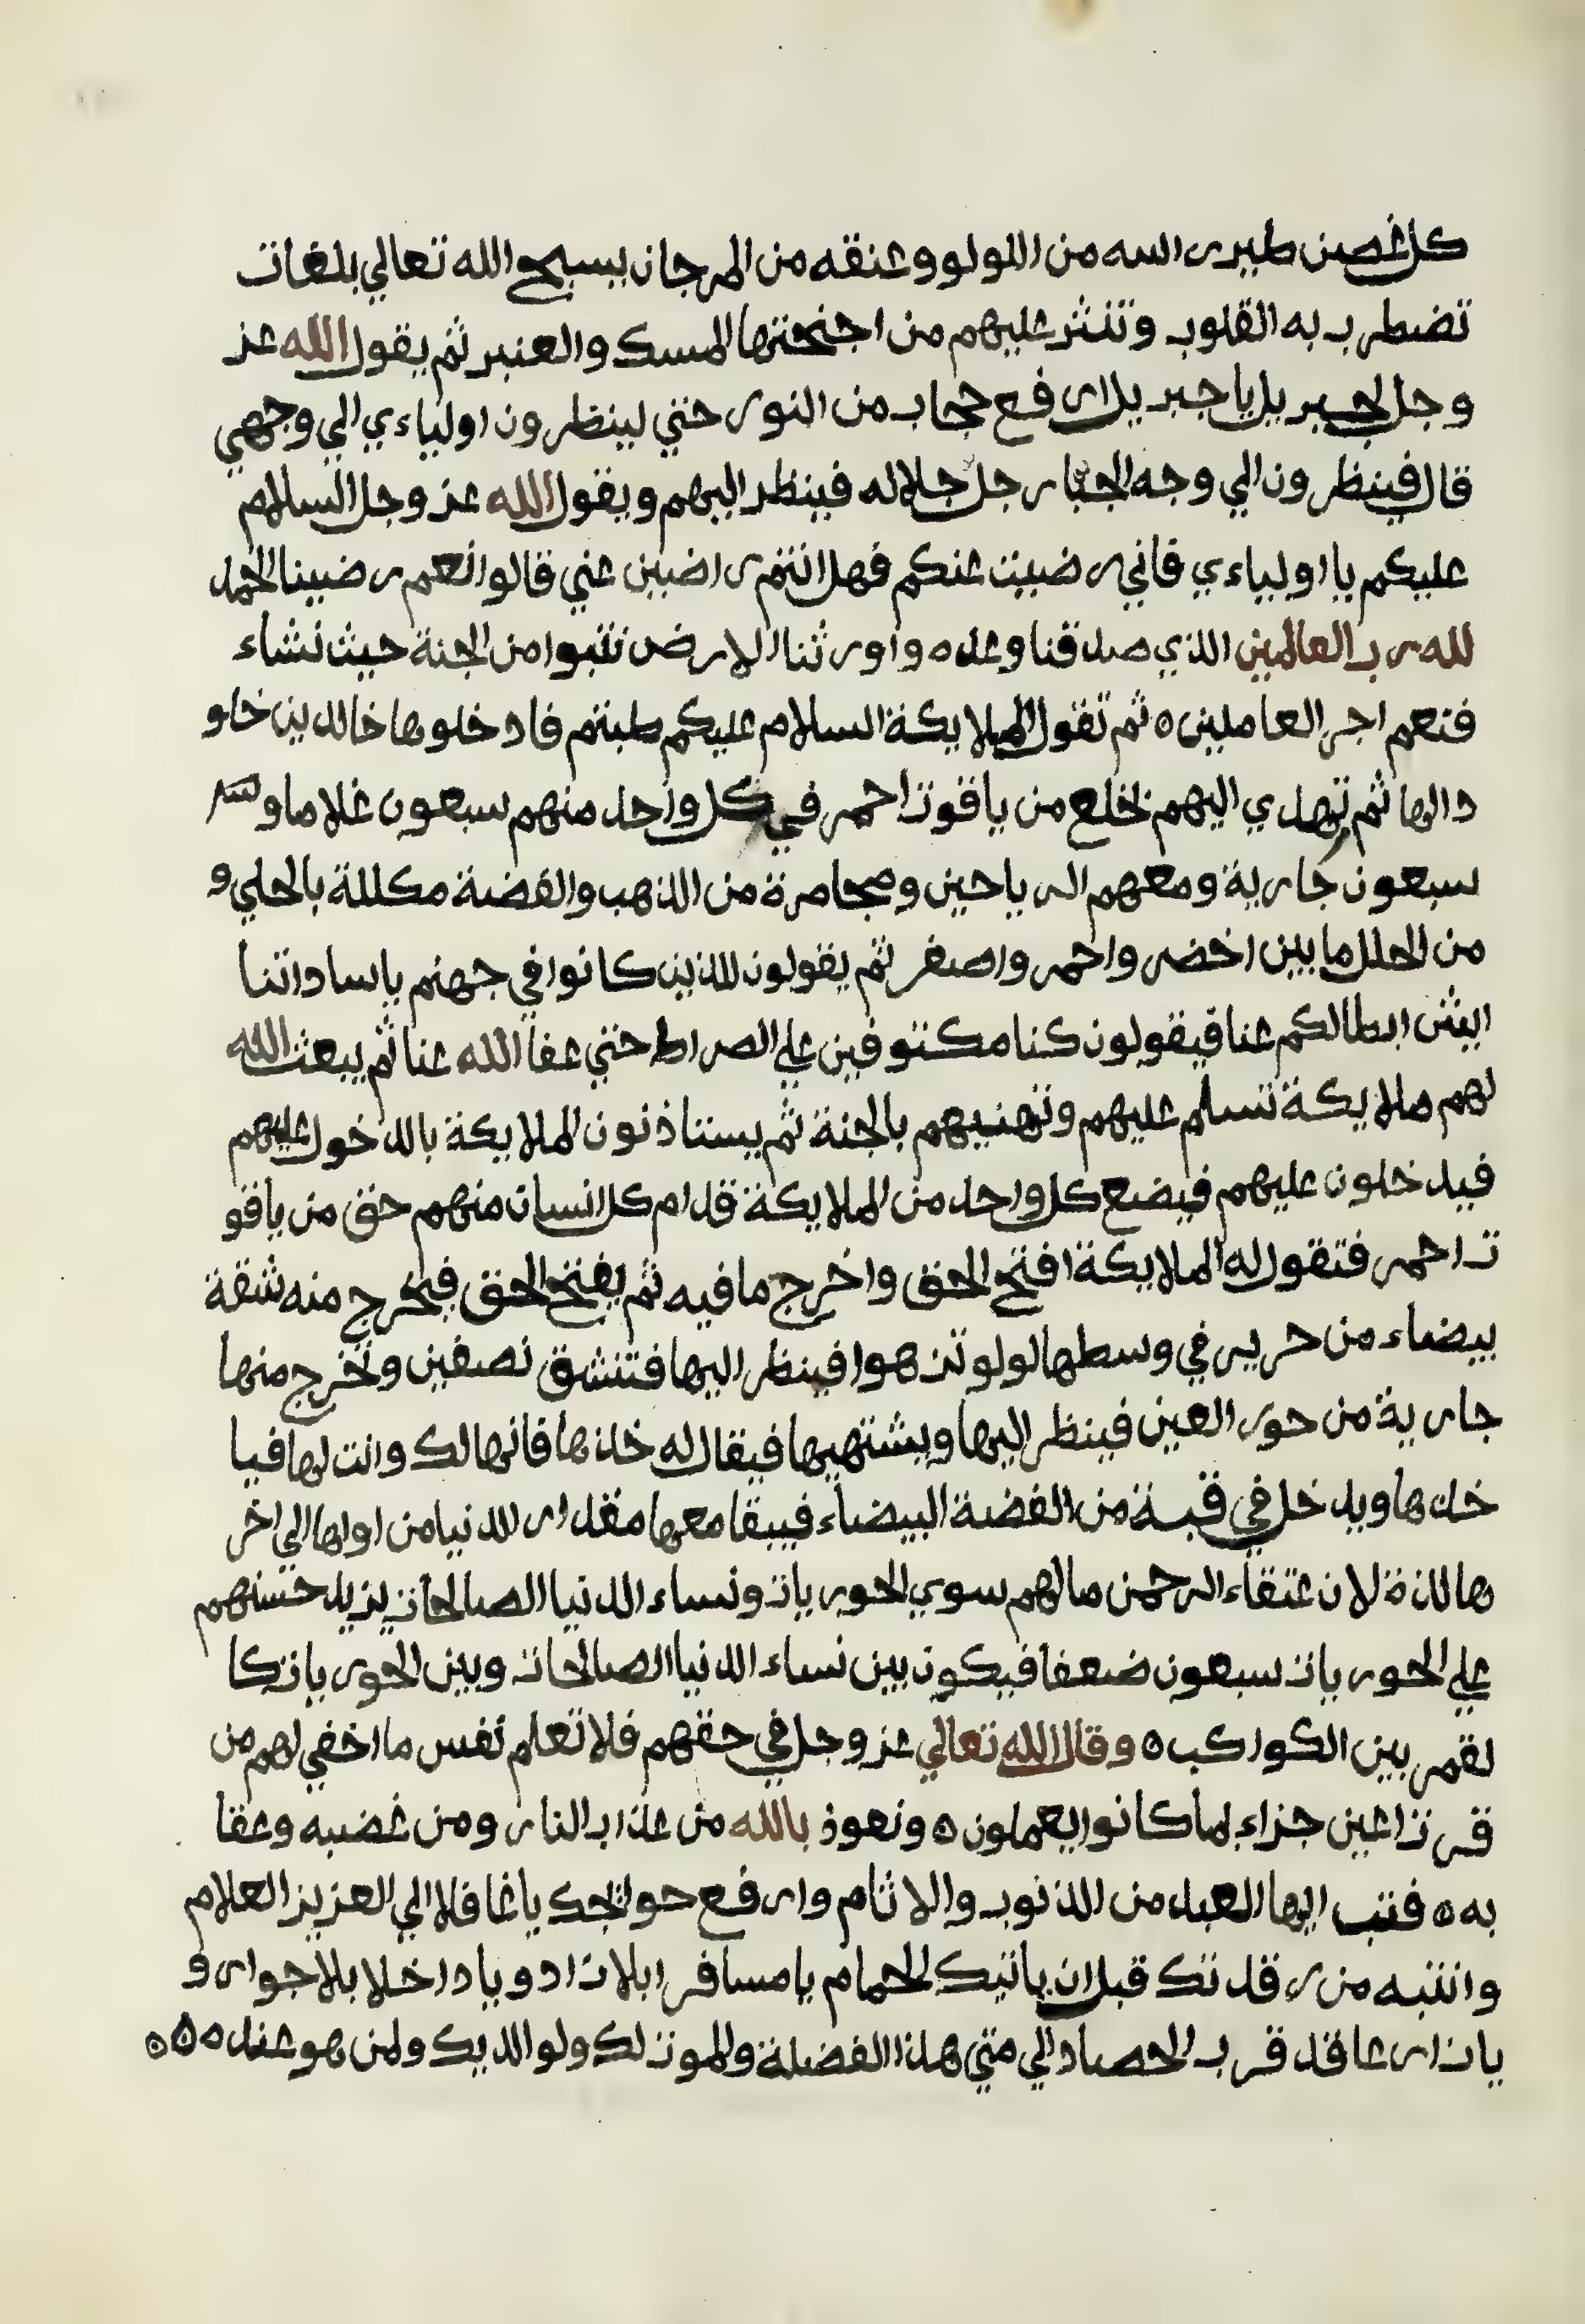 كل غصن طير راسه من اللولو وعنقه من المرجان يسبح الله تعالي بلغات
تضطرب به القلوب وتنثر عليهم من اجنحتها المسك والعنبر ثم يقول الله عز
وجل لجبريل يا جبريل ارفع حجاب من النور حتي لينظرون اولياءي الي وجهي
قال فينظرون الي وجه الجبار جل جلاله فينظر اليهم ويقول الله عز وجل السلام
عليكم يا اولياءي فاني رضيت عنكم فهل انتم راضين عني قالوا نعم رضينا الحمد
لله رب العالمين الذي صدقنا وعده واورثنا الارض نتبوا من الجنة حيث نشاء
فنعم اجر العاملين ٥ ثم تقول الملايكة السلام عليكم طبتم فادخلوها خالدين خلو
دالها ثم تهدي اليهم نخلع من ياقوت احمر في كل واحد منهم سبعون غلاما و
سبعون جارية ومعهم الرياحين ومجامرة من الذهب والفضة مكللة بالحلي و
من الحلل ما بين اخضر واحمر واصفر ثم يقولون للذين كانوا في جهنم يا ساداتنا
ايش ابطالكم عنا فيقولون كنا مكتوفين علي الصراط حتي عفا الله عنا ثم يبعث الله
لهم ملايكة تسلم عليهم وتهنيهم بالجنة ثم يستاذنون الملايكة بالدخول عليهم
فيدخلون عليهم فيضع كل واحد من الملايكة قدام كل انسان منهم حق من ياقو
ت احمر فتقول له الملايكة افتح الحق واخرج ما فيه ثم يفتح الحق فيخرج منه شقة
بيضاء من حرير في وسطها لولو تزهوا فينظر اليها فتنشق نصفين وتخرج منها
جارية من حور العين فينظر اليها ويشتهيها فيقال له خذها فانها لك وانت لها فيا
خذها ويدخل في قبة من الفضة البيضاء فيبقا معها مقدار الدنيا من اولها الي اخر
ها لذة لان عتقاء الرحمن ما لهم سوي الحوريات ونساء الدنيا الصالحات يزيد حسنهم
علي الحوريات سبعون ضعفا فيكون بين نساء الدنيا الصالحات وبين الحوريات كا
لقمر بين الكواكب ٥ وقال الله تعالي عز وجل في حقهم فلا تعلم نفس ما اخفي لهم من
قرت اعين جزاء لما كانوا يعملون ٥ ونعوذ بالله من عذاب النار ومن غضبه وعقا
به ٥ فتب ايها العبد من الذنوب والاثام وارفع حوايجك يا غافلا الي العزيز العلام
وانتبه من رقدتك قبل ان ياتيك الحمام يا مسافرا بلا زاد و يا داخلا بلا جوار و
يا زارعا قد قرب الحصاد الي متي هذا الفضلة والموت لك ولوالديك ولمن هو عنده ٥ ٥ ٥